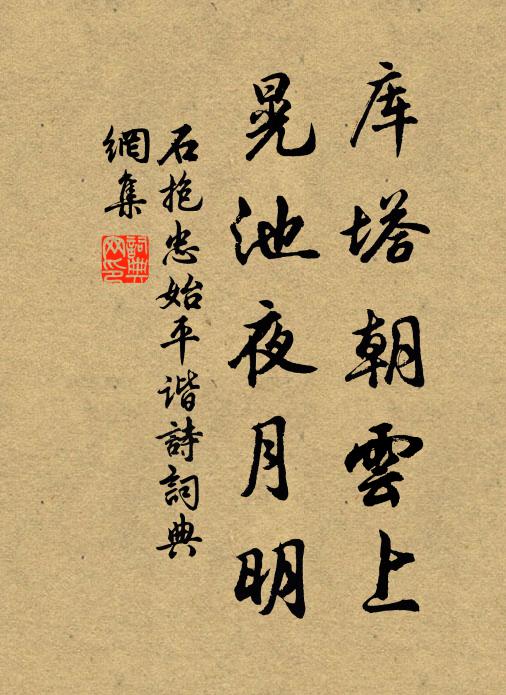 库塔朝雲上
晃池夜月明
石抱忠始平谐詩詞典
網集
詞典
网印